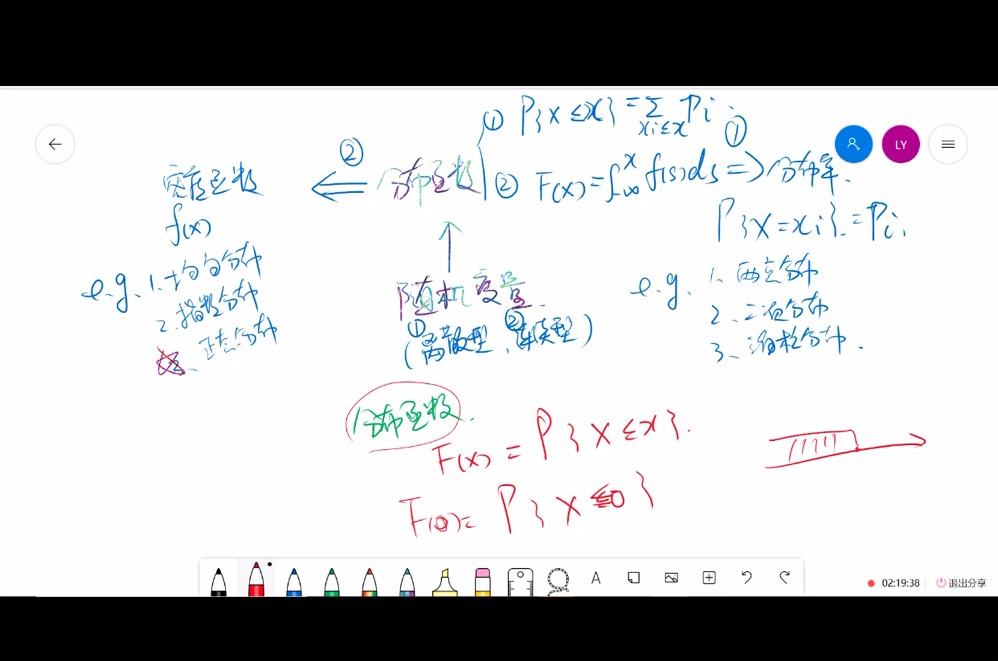 ① P{X≤x}=∑ Pi.
xi≤x
①
② F(x)=∫-∞^x f(s)ds => 分布率.
②
分布函数
密度函数
f(x)
P{X=xi}=Pi.
e.g. 1. 均匀分布
2. 指数分布
3、正态分布
随机变量.
① ②
(离散型、连续型)
e.g. 1. 两点分布
2、二项分布
3、泊松分布.
分布函数.
F(x)=P{X≤x}.
F(0)=P{X≤0}
LY
A
02:19:38
退出分享